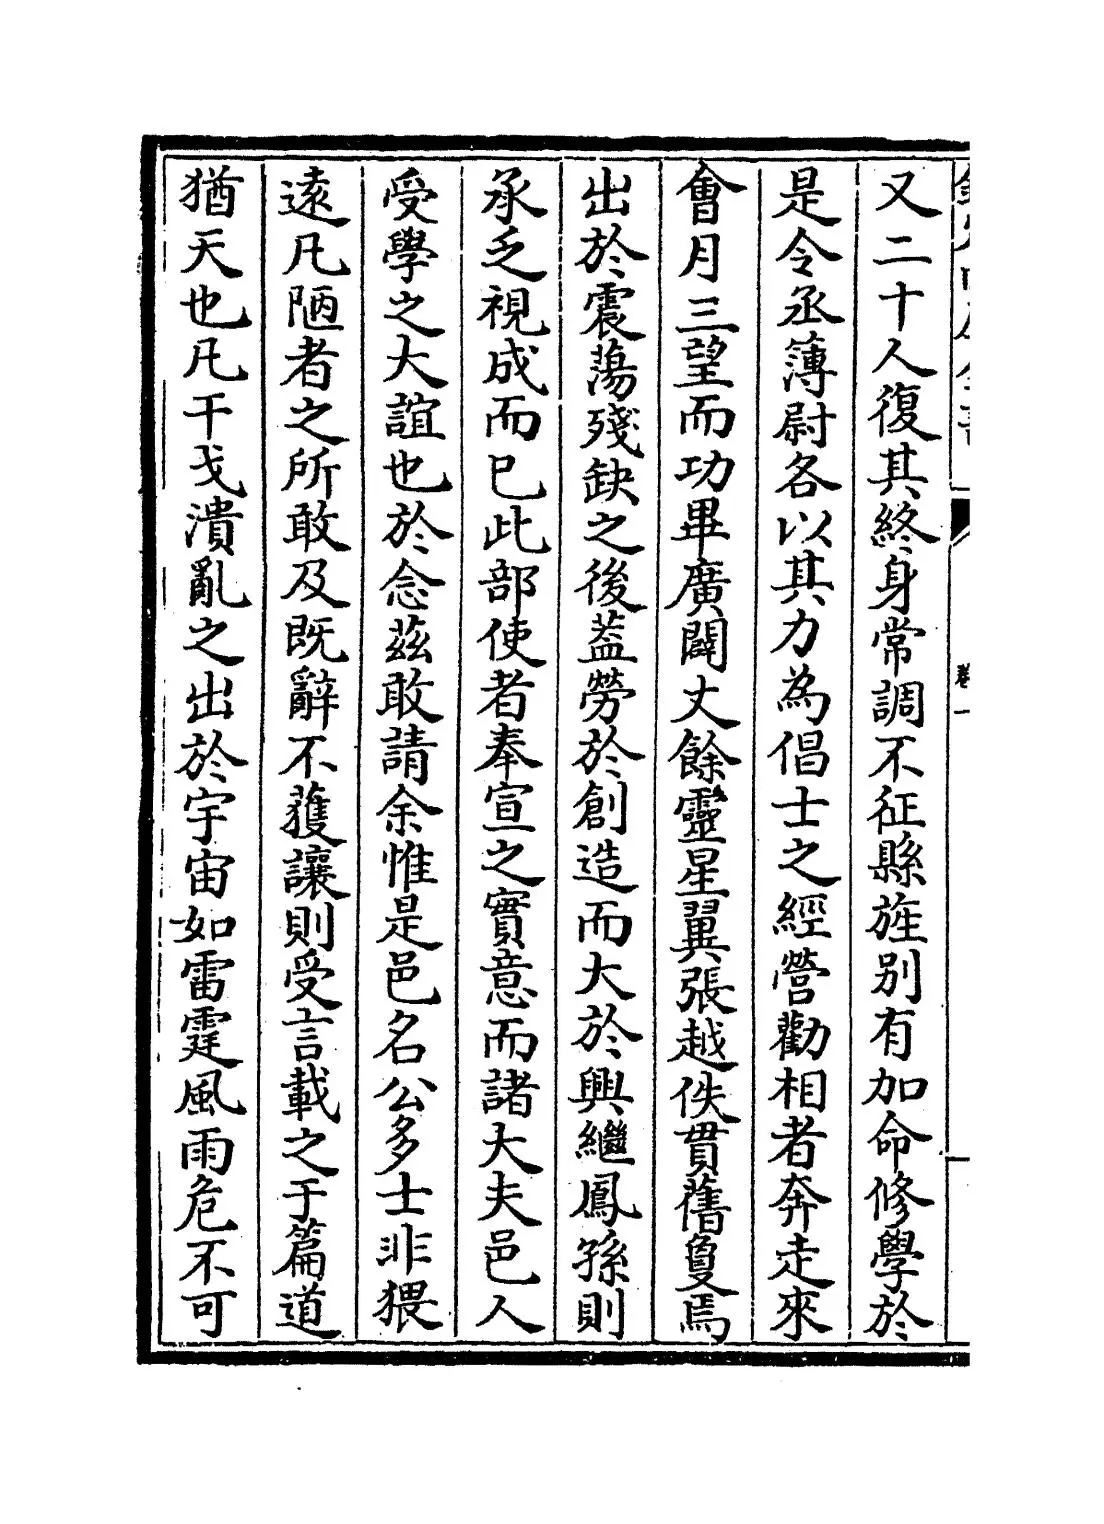 又二十人復其終身常調不征縣旌别有加命修學於
是令丞簿尉各以其力為倡士之經營勸相者奔走來
會月三望而功畢廣闢丈餘靈星翼張越佚貫舊敻焉
出於震蕩殘缺之後葢勞於創造而大於興繼鳳孫則
承乏視成而已此部使者奉宣之實意而諸大夫邑人
受學之大誼也於念茲敢請余惟是邑名公多士非猥
遠凡陋者之所敢及既辭不獲讓則受言載之于篇道
猶天也凡干戈潰亂之出於宇宙如雷霆風雨危不可
卷一